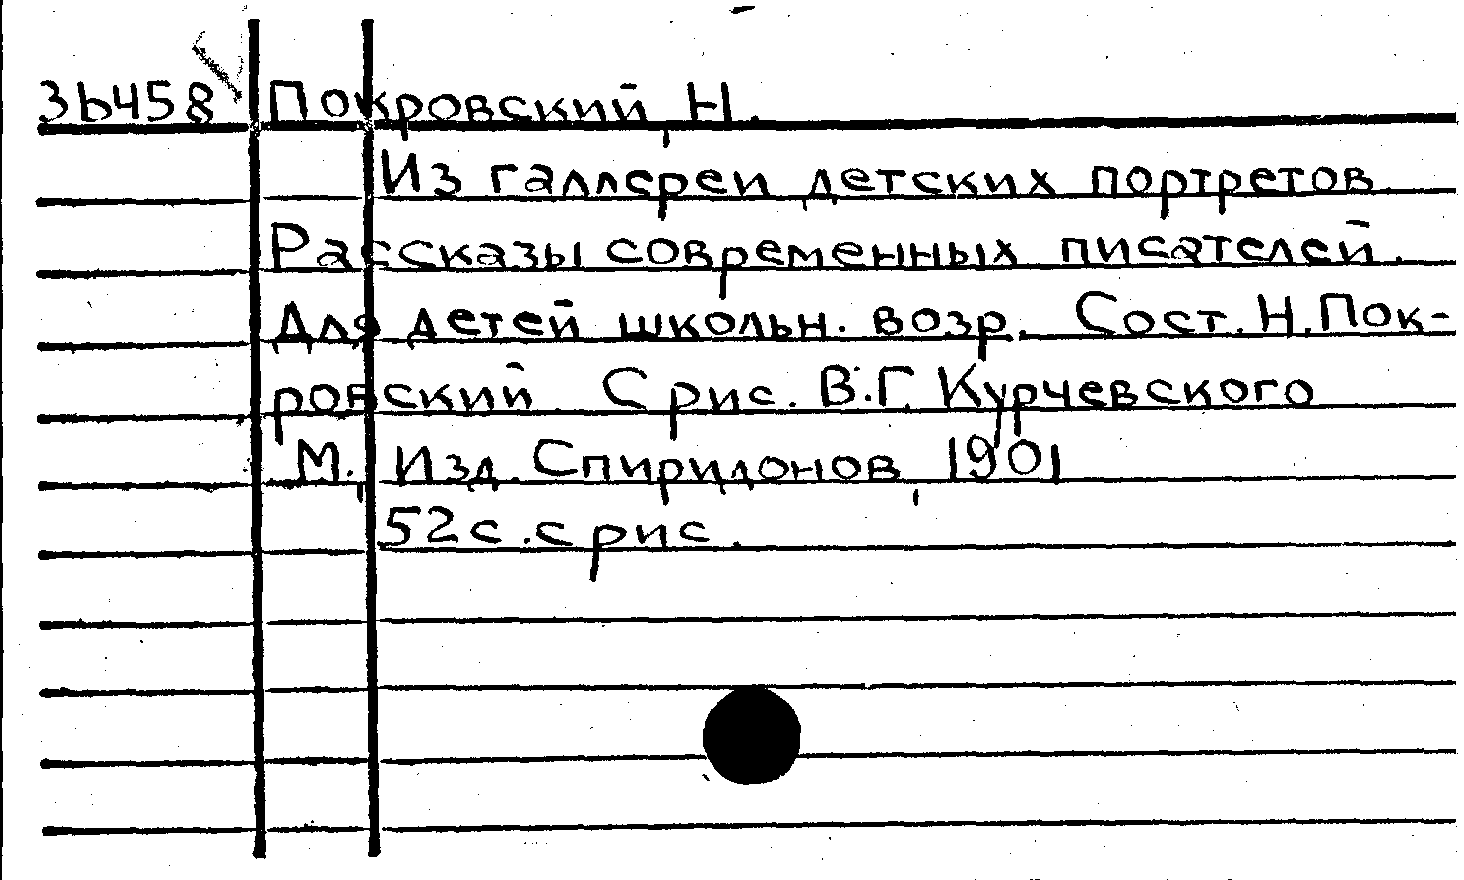 3b458 Покровский, Н.
Из галлереи детских портретов
Рассказы современных писателей.
Для детей школьн. возр. Сост. Н. Пок-
ровский С рис. В.Г. Курчевского
М., Изд. Спиридонов, 1901
52 с. с рис.